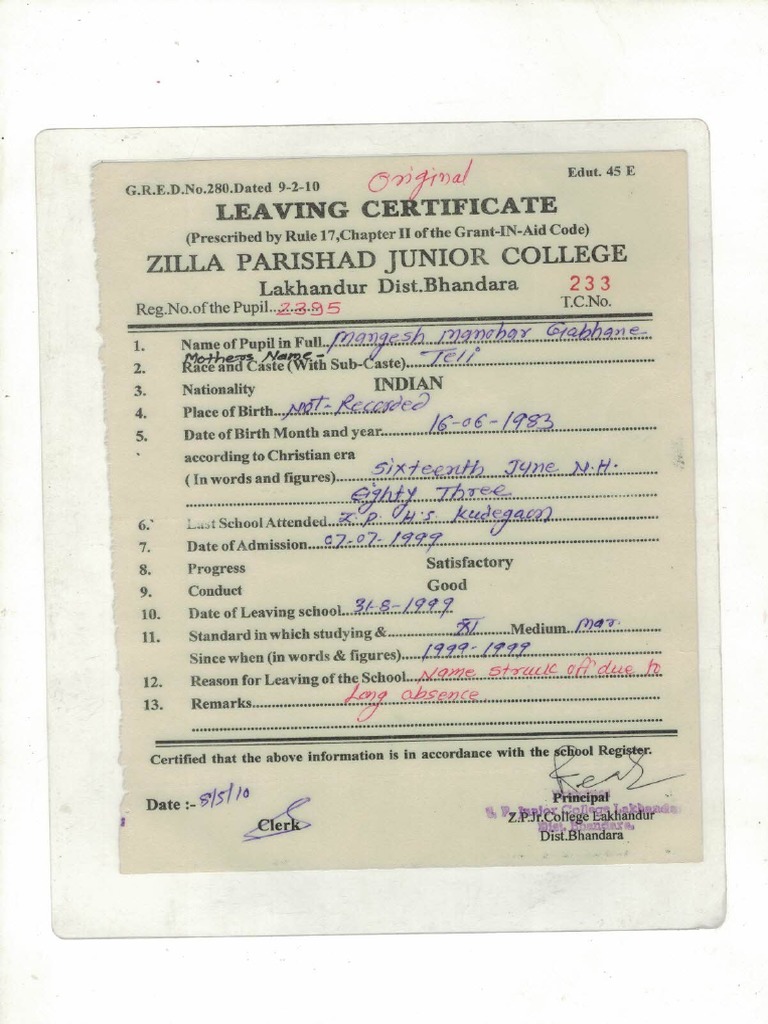 Original
Edut. 45 E
G.R.E.D.No.280.Dated 9-2-10
LEAVING CERTIFICATE
(Prescribed by Rule 17,Chapter II of the Grant-IN-Aid Code)
ZILLA PARISHAD JUNIOR COLLEGE
Lakhandur Dist.Bhandara
233
Reg.No.of the Pupil..2395
T.C.No.
1. Name of Pupil in Full..Mangesh Manohar Gabhane
Mothers Name -
2. Race and Caste (With Sub-Caste)....Teli
3. Nationality INDIAN
4. Place of Birth...Not-Recorded
5. Date of Birth Month and year....16-06-1983
according to Christian era
( In words and figures)....Sixteenth June N.H.
Eighty Three
6. Last School Attended..Z.P. H.S. Kudegaon
7. Date of Admission...07-07-1999
8. Progress Satisfactory
9. Conduct Good
10. Date of Leaving school...31-8-1999
11. Standard in which studying &....XI....Medium Mar.
Since when (in words & figures)....1999-1999
12. Reason for Leaving of the School..Name struck off due to
13. Remarks....Long absence
Certified that the above information is in accordance with the school Register.
Date :- 8/5/10
Clerk
Principal
Z.P.Jr.College Lakhandur
Dist.Bhandara